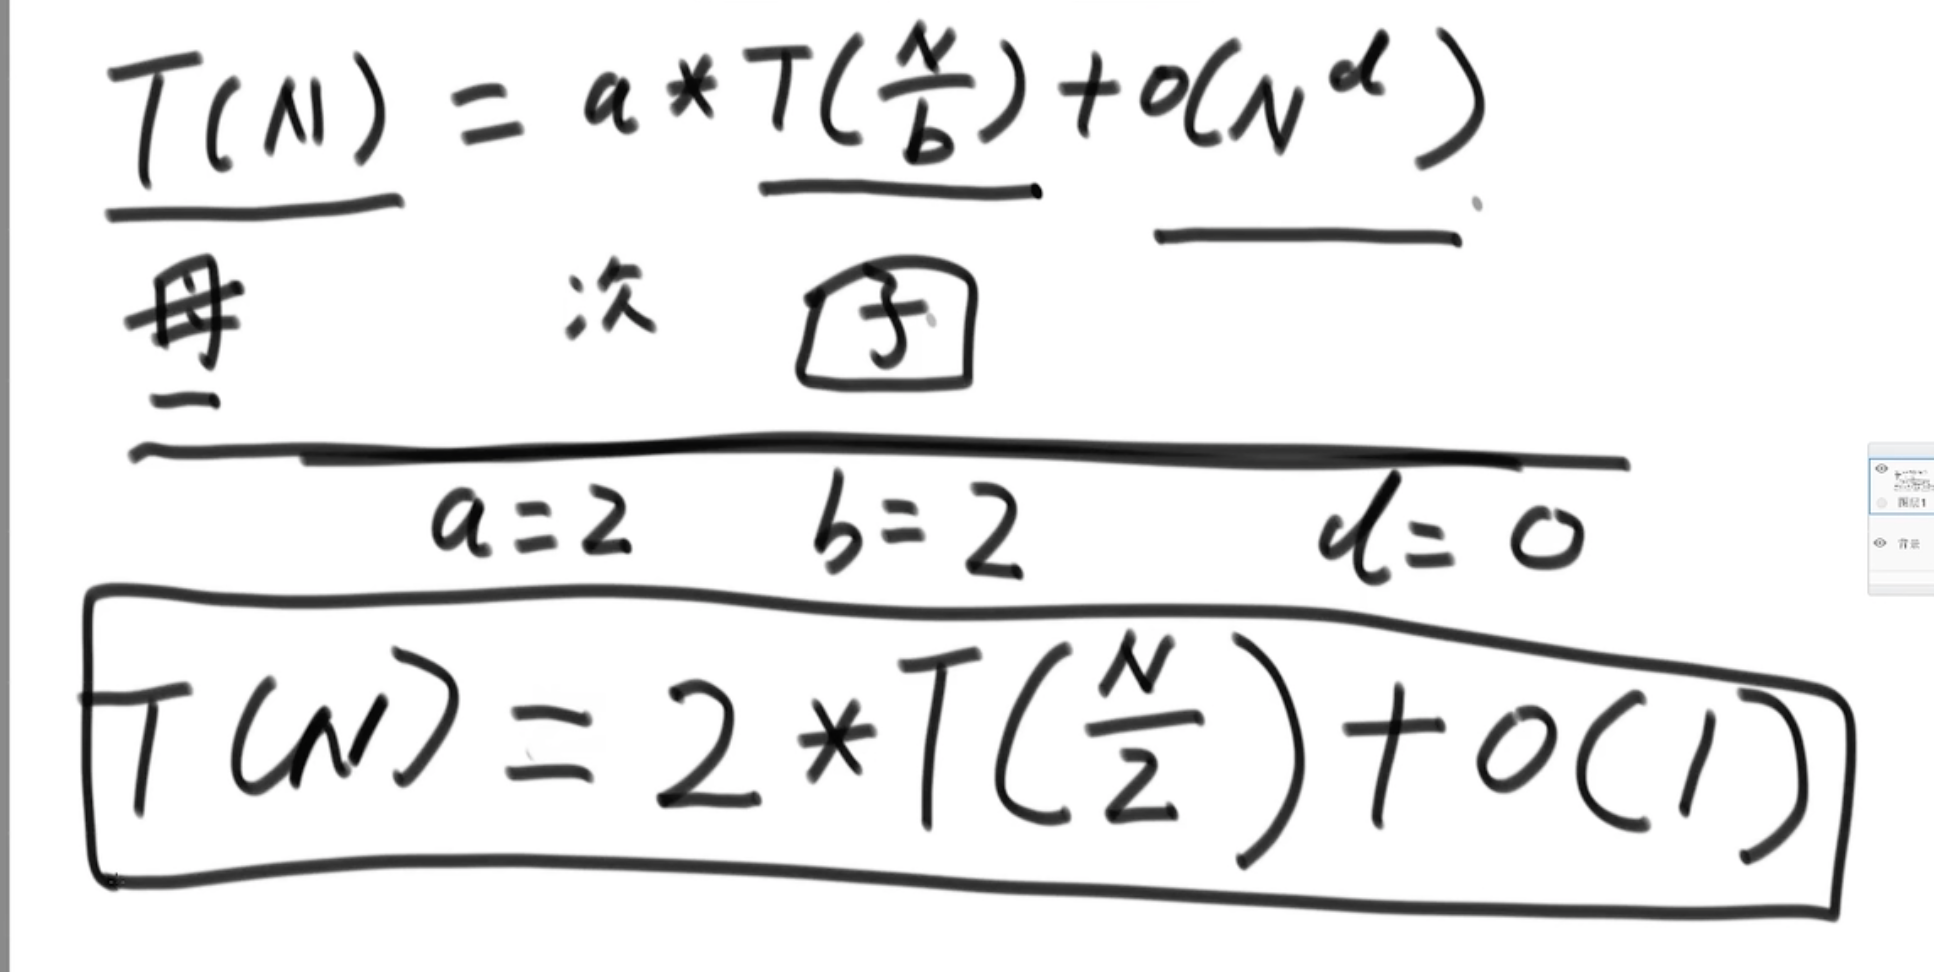 T(N) = a * T(N/b) + O(N^d)
母 次 子
a = 2 b = 2 d = 0
T(N) = 2 * T(N/2) + O(1)
图层1
背景